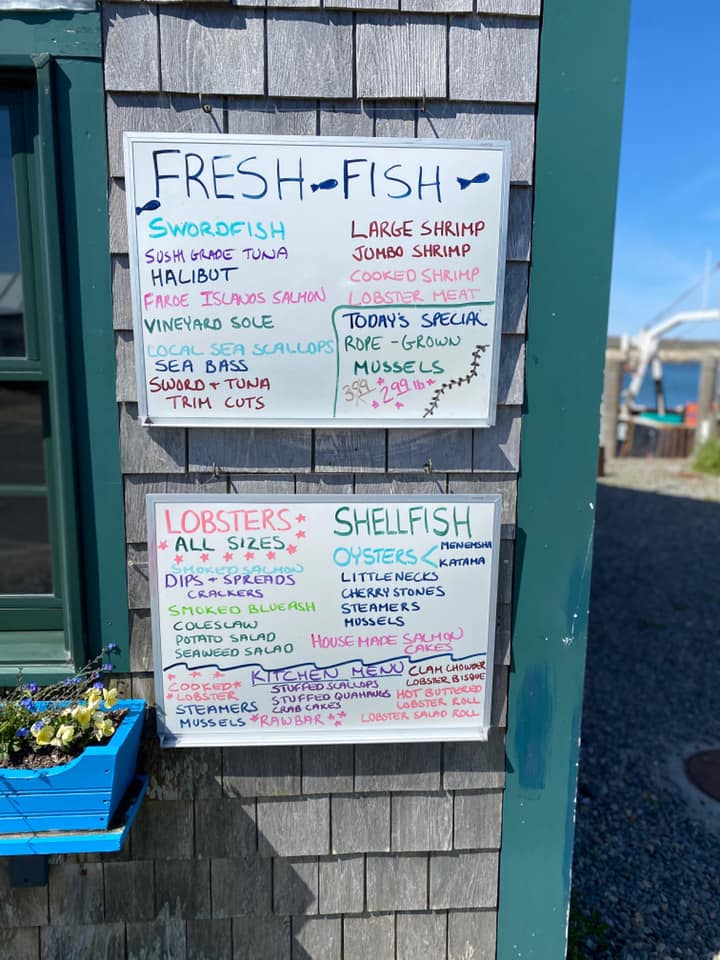 FRESH FISH
SWORDFISH
SUSHI GRADE TUNA
HALIBUT
FAROE ISLANDS SALMON
VINEYARD SOLE
LOCAL SEA SCALLOPS
SEA BASS
SWORD + TUNA
TRIM CUTS
LARGE SHRIMP
JUMBO SHRIMP
COOKED SHRIMP
LOBSTER MEAT
TODAY'S SPECIAL
ROPE-GROWN
MUSSELS
3.99 2.99 lb
LOBSTERS
ALL SIZES
SMOKED SALMON
DIPS + SPREADS
CRACKERS
SMOKED BLUEFISH
COLESLAW
POTATO SALAD
SEAWEED SALAD
SHELLFISH
OYSTERS < MENEMSHA
KATAMA
LITTLENECKS
CHERRYSTONES
STEAMERS
MUSSELS
HOUSE MADE SALMON
CAKES
KITCHEN MENU
COOKED
LOBSTER
STEAMERS
MUSSELS
STUFFED SCALLOPS
STUFFED QUAHAUGS
CRAB CAKES
RAWBAR
CLAM CHOWDER
LOBSTER BISQUE
HOT BUTTERED
LOBSTER ROLL
LOBSTER SALAD ROLL